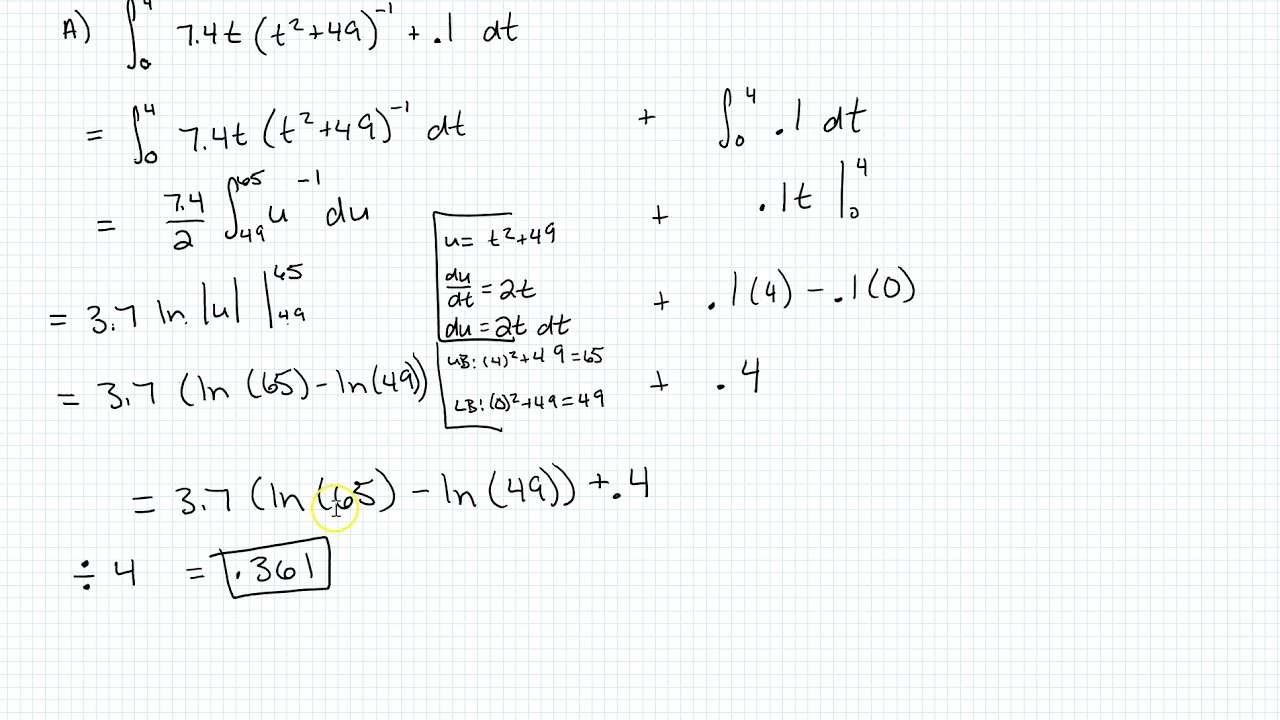 A) ∫₀⁴ 7.4t (t²+49)⁻¹ + .1 dt
= ∫₀⁴ 7.4t (t²+49)⁻¹ dt + ∫₀⁴ .1 dt
= 7.4/2 ∫₄₉⁶⁵ u⁻¹ du + .1t |₀⁴
u = t²+49
du/dt = 2t
du = 2t dt
= 3.7 ln |u| |₄₉⁶⁵ + .1(4) - .1(0)
UB: (4)²+49=65
LB: (0)²+49=49
= 3.7 (ln (65) - ln(49)) + .4
= 3.7 (ln (65) - ln (49)) + .4
÷ 4 = .361